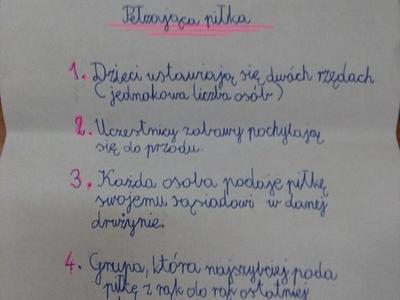 Pełzająca piłka
1. Dzieci ustawiają się dwóch rzędach
(jednakowa liczba osób)
2. Uczestnicy zabawy pochylają
się do przodu.
3. Każda osoba podaje piłkę
swojemu sąsiadowi w danej
drużynie.
4. Grupa, która najszybciej poda
piłkę z rąk do rąk ostatniej